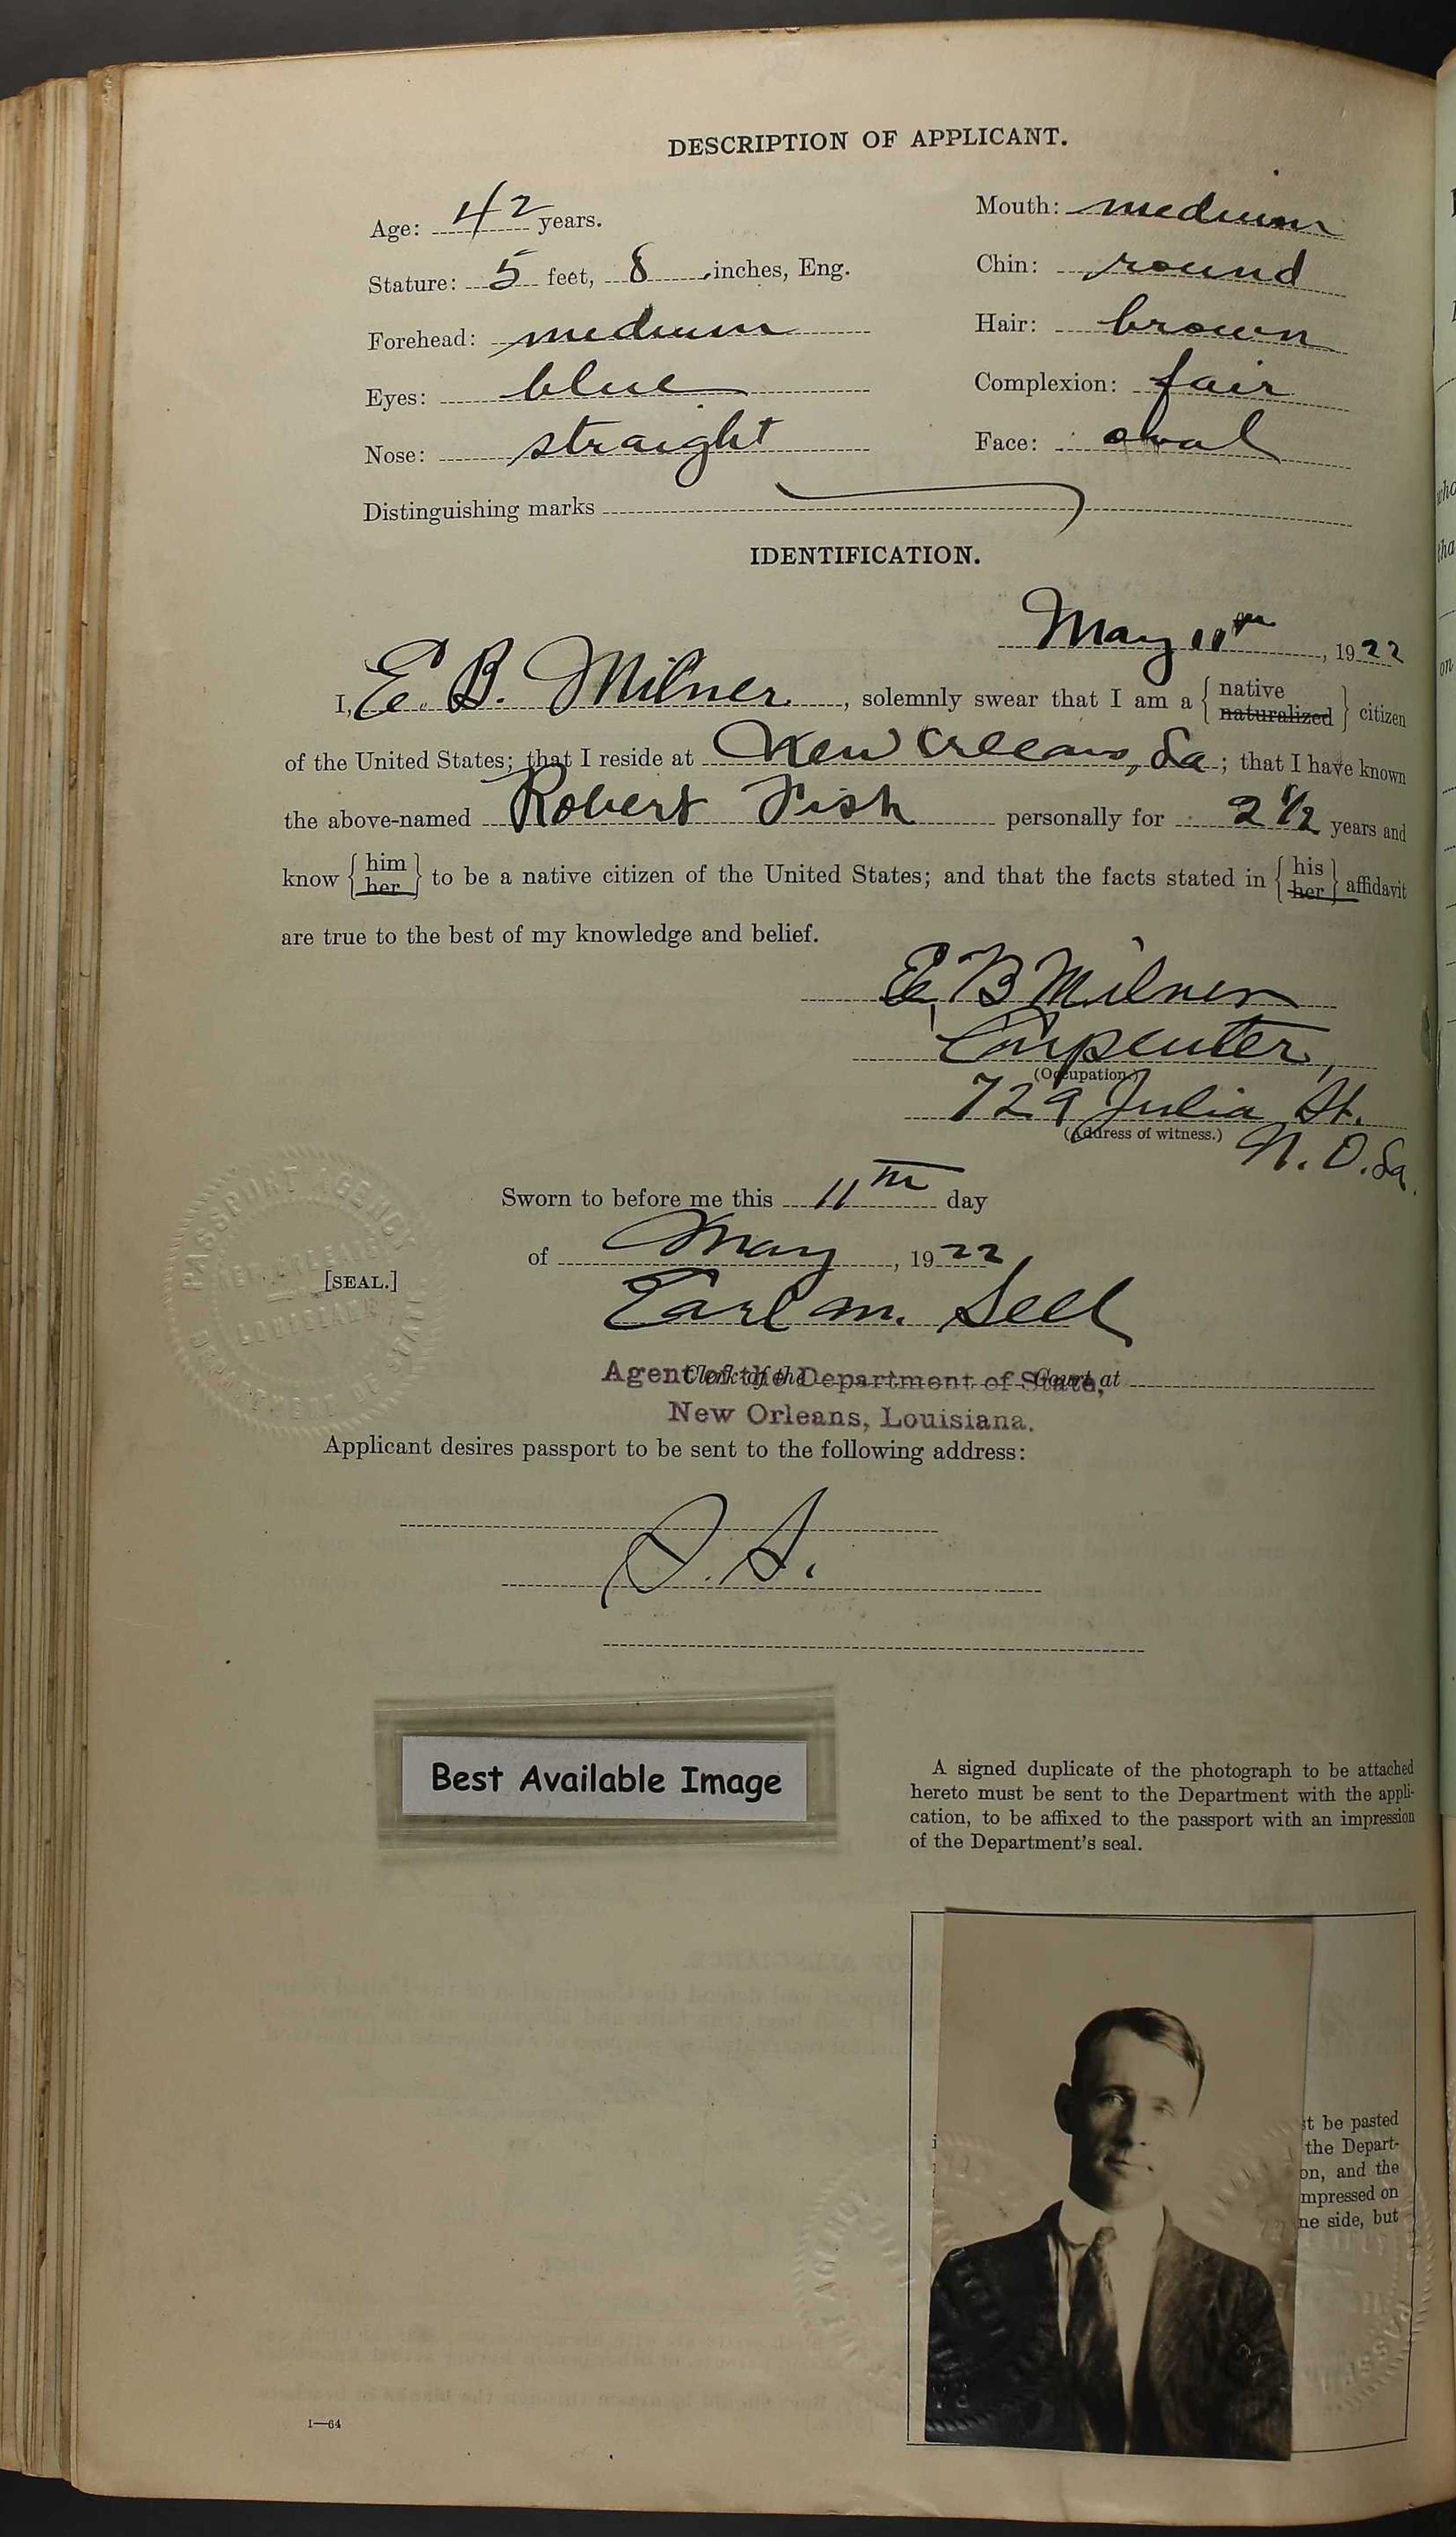 DESCRIPTION OF APPLICANT.
Age: 42 years.
Mouth: medium
Stature: 5 feet, 8 inches, Eng.
Chin: round
Forehead: medium
Hair: brown
Eyes: blue
Complexion: fair
Nose: straight
Face: oval
Distinguishing marks
IDENTIFICATION.
May 11th, 1922
I, E. B. Milner, solemnly swear that I am a { native naturalized } citizen
of the United States; that I reside at New Orleans, La; that I have known
the above-named Robert Fish personally for 2 1/2 years and
know { him her } to be a native citizen of the United States; and that the facts stated in { his her } affidavit
are true to the best of my knowledge and belief.
E. B Milner
Carpenter,
(Occupation.)
729 Julia St.
(Address of witness.) N. O. La.
Sworn to before me this 11th day
of May, 1922
[SEAL.]
PASSPORT AGENCY
NEW ORLEANS
LOUISIANA
DEPARTMENT OF STATE
Earl M. Sell
Clerk of the Court at
Agent of the Department of State,
New Orleans, Louisiana.
Applicant desires passport to be sent to the following address:
Best Available Image
A signed duplicate of the photograph to be attached
hereto must be sent to the Department with the appli-
cation, to be affixed to the passport with an impression
of the Department's seal.
st be pasted
the Depart-
on, and the
mpressed on
ne side, but
I—64